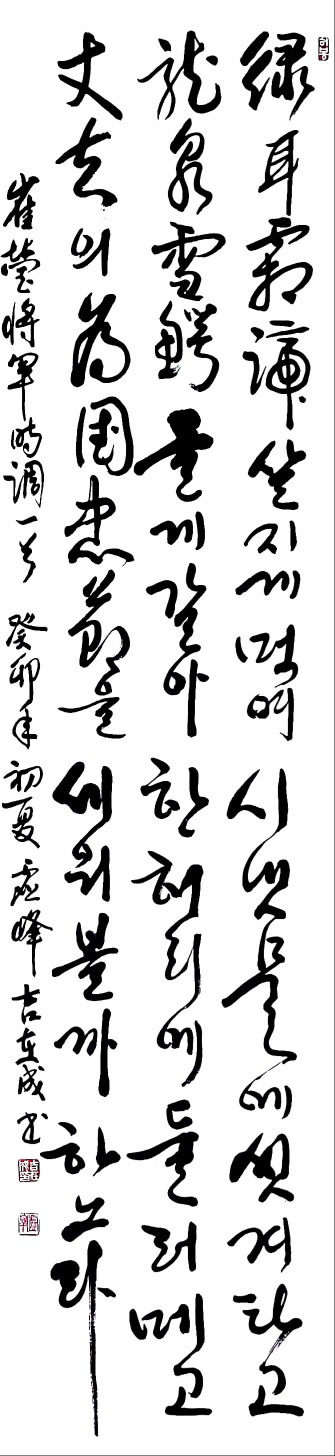 綠耳霜蹄 살지게 먹여 시냇물에 씻겨 타고
龍泉雪鍔 들게 갈아 한 허리에 둘러메고
丈夫의 為國忠節을 세워볼까 하노라
崔瑩將軍 時調一首 癸卯年 初夏 虛峰 吉在成 書